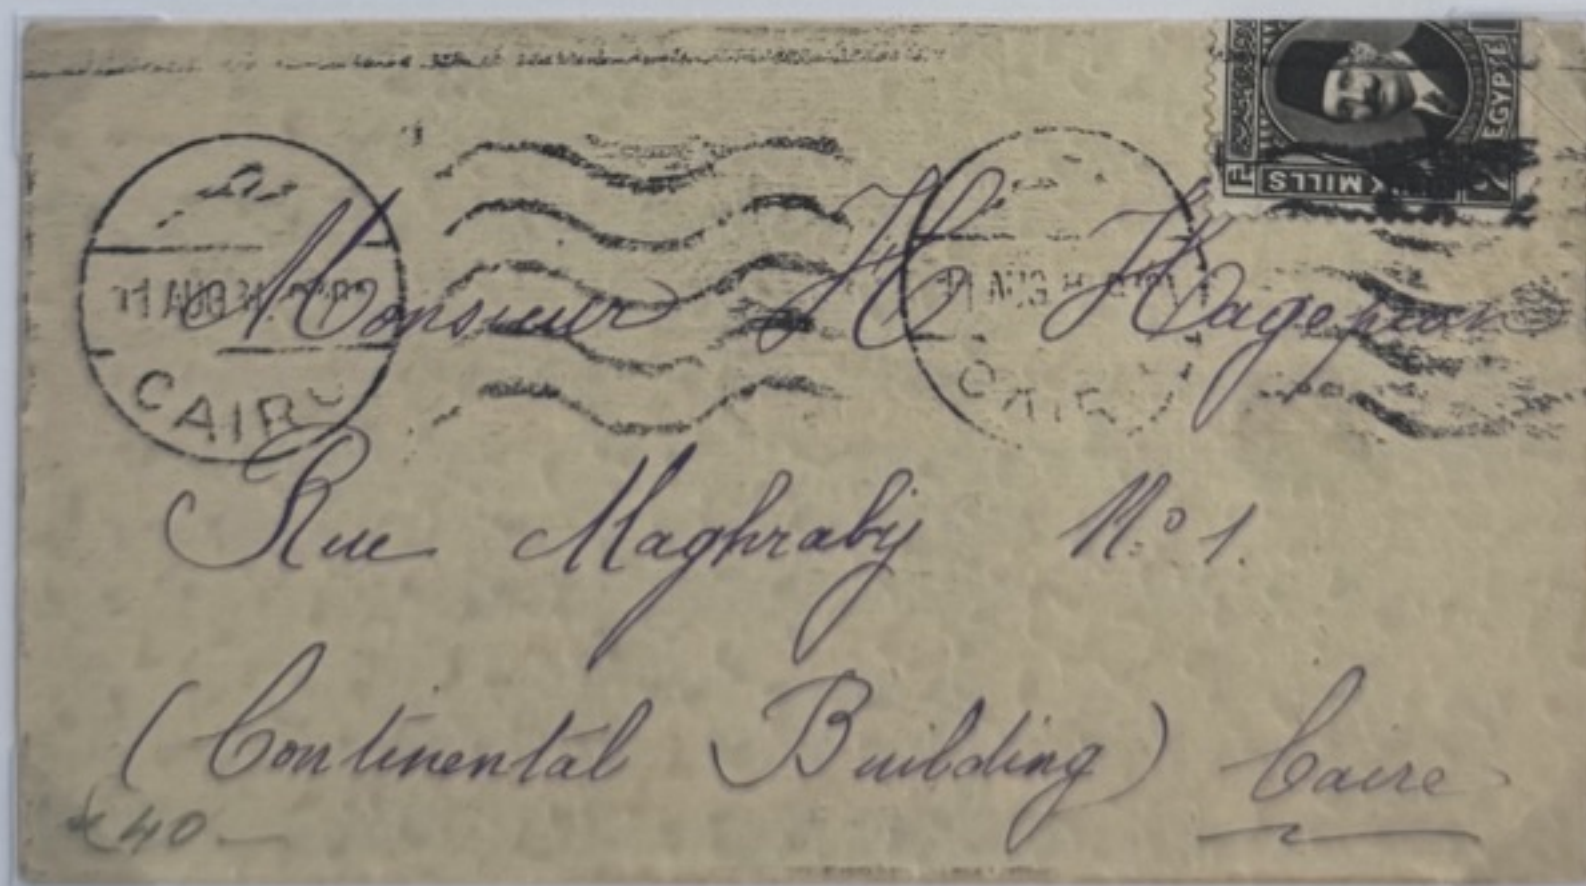 EGYPTE
MILLS
11 AUG 31
CAIRO
11 AUG
CAIR
Monsieur H. Hagepian
Rue Maghraby N:o 1.
(Continental Building) Caire
40 -